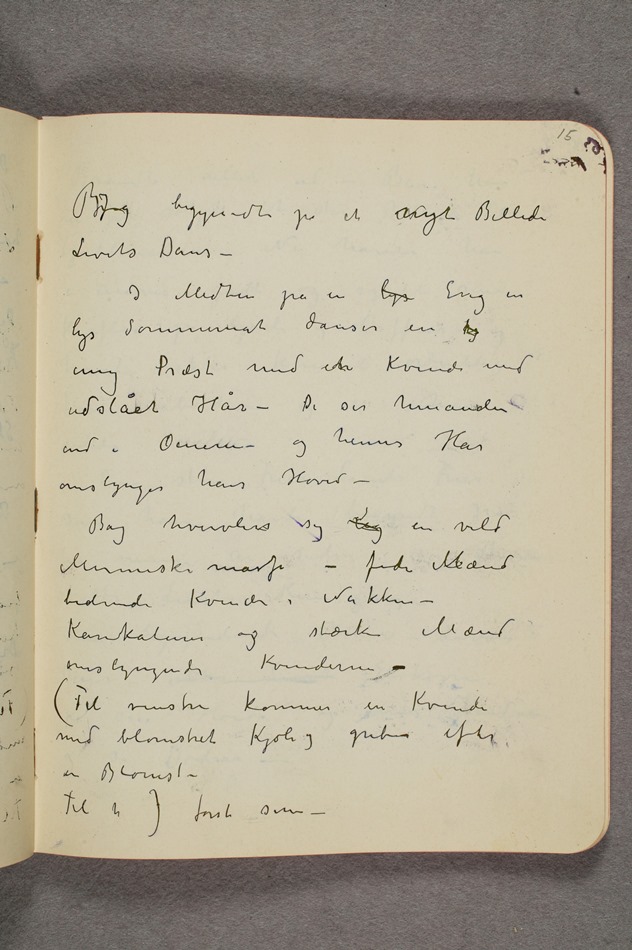 15
Jeg begyndte på et nyt Billede
Livets Dans –
I Midten på en lys Eng en
lys Sommernat danser en
ung Præst med en Kvinde med
udslået Hår – De ser hinanden
ind i Øinene – og hennes Hår
omslynger hans Hoved –
Bag hvirvler sig en vild
Menneskemasse – fede Mænd
bidende Kvinder i Nakken –
Karikaturer og stærke Mænd
omslyngende Kvinderne –
(Til venstre kommer en Kvinde
med blomstret Kjole og griber efter
en Blomst –
Til h ) først sinn –